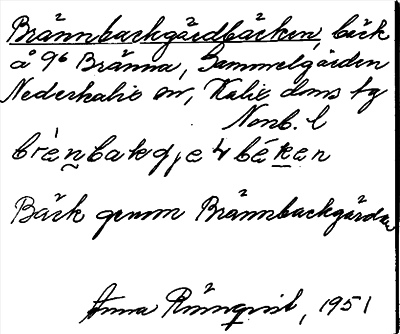 Brännbackgårdbäcken, bäck
å 96 Bränna, Gammelgården
Nederkalix sn, Kalix dms tg
Norrb. l
brènbakgɑ̣eɖbéken
Bäck genom Brännbackgården
Anna Rönnqvist, 1951